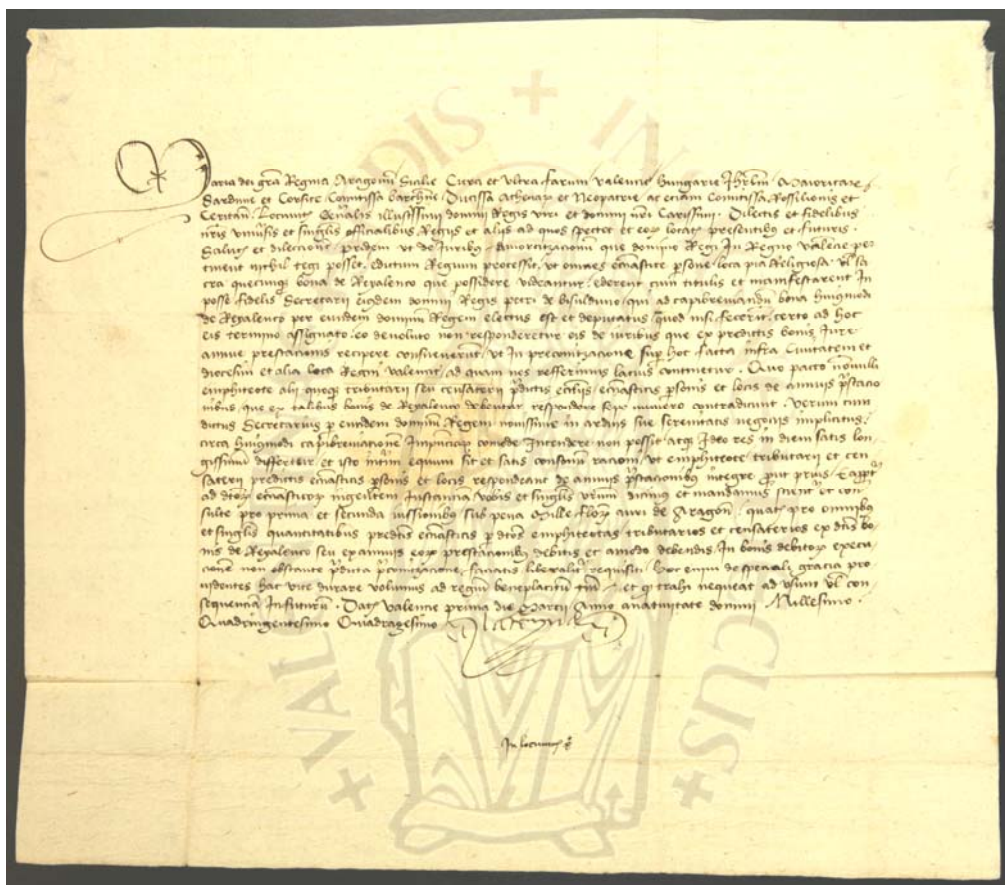 Maria dei gra Regina Aragonu Sicilie Citra et Ultra farum Valencie Hungarie Jhrlm Maioricarum
Sardinie et Corsice Comitissa barchne Ducissa Athenarum et Neopatrie ac eciam Comitissa Rossilionis et
Ceritan Locumtes Gnalis illustrissimi domini Regis viri et domini nri Carissimi Dilectis et fidelibus
nris vniusis et singlis officialibus Regiis et aliis ad quos spectet et eorum locatis presentibus et futuris
Salute et dileccione pridem ut de Juribus Amorticzacionu que domino Regi In Regno Valecie per
tinent nichil tegi posset edictum Regium processit ut omnes ecciastice psone loca pia Religiosa vl sa
cra quecunque bona de Reyalenco que possidere videantur ederent cum titulis et manifestarent In
posse fidelis Secretarii eiusdem domini Regis petri de bisulduno qui ad capibreviandum bona huiusmodi
de Regalenco per eundem dominum Regem electus est et deputatus quod nisi fecerint certo ad hoc
eis termino assignato eo devoluto non responderetur eis de iuribus que ex predictis bonis Jure
annue prestacionis recipere consueverunt ut In preconitzacione sup hoc facta infra Civitatem et
diocesim et alia loca Regni valencie ad quam nos refferimus lacius continetur Quo pacto nonnulli
emphiteote alii quoque tributarii seu censatarii pdictis ecclesiis ecciasticis psonis et locis de annuis pstacio
nibus que ex talibus bonis de Reyalenco debentur respondere contradicunt Verum cum
dictus Secretarius p eundem dominum Regem novissime in arduis sue serenitatis negociis implicitus
circa huiusmodi capibreviacione comode Intendere non possit atque Ideo res in diem satis lon
gissimum differtur et isto interim equum sit et satis consonum racioni ut emphiteote tributarii et cen
satarii predictis ecciasticis psonis et locis respondeant de annuis pstacionibus integre prout prius
ad ecciasticorum ingentem Instancia vobis et singlis vrum dicimus et mandamus scient et con
sulte pro prima et secunda iussionibus sub pena Mille floru auri de Aragon quatenus pro omnibus
et singlis quantitatibus predictis ecciasticis p dictos emphiteotas tributarios et censatarios ex dictis bo
nis de Reyalenco seu ex annuis eorum prestacionibus debitis et amodo debendis In bonis debitorum execu
cione non obstante pdicta pconitzacione faciatis liberaliter requisiti Hoc enim de speciali gracia pro
videntes hac vice durare volumus ad regium beneplacitum et qd trahi nequeat ad usum vl con
sequencia Infuturum Dat Valencie prima die Marcii Anno anativitate domini Millesimo
Quadringentesimo Quadragesimo La Reyna
In locumtn
+ VAL DIS + IN CUS +